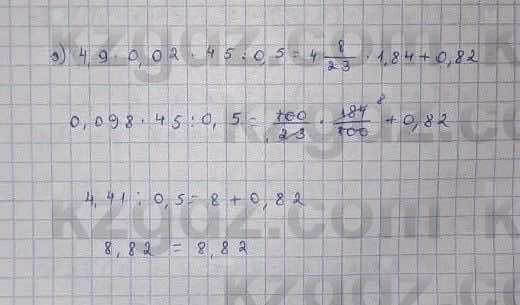 э) 4,9 · 0,02 · 45 : 0,5 = 4 8/23 · 1,84 + 0,82
0,098 · 45 : 0,5 = 100/23 · 184/100 8 + 0,82
4,41 : 0,5 = 8 + 0,82
8,82 = 8,82
kzgdz.com